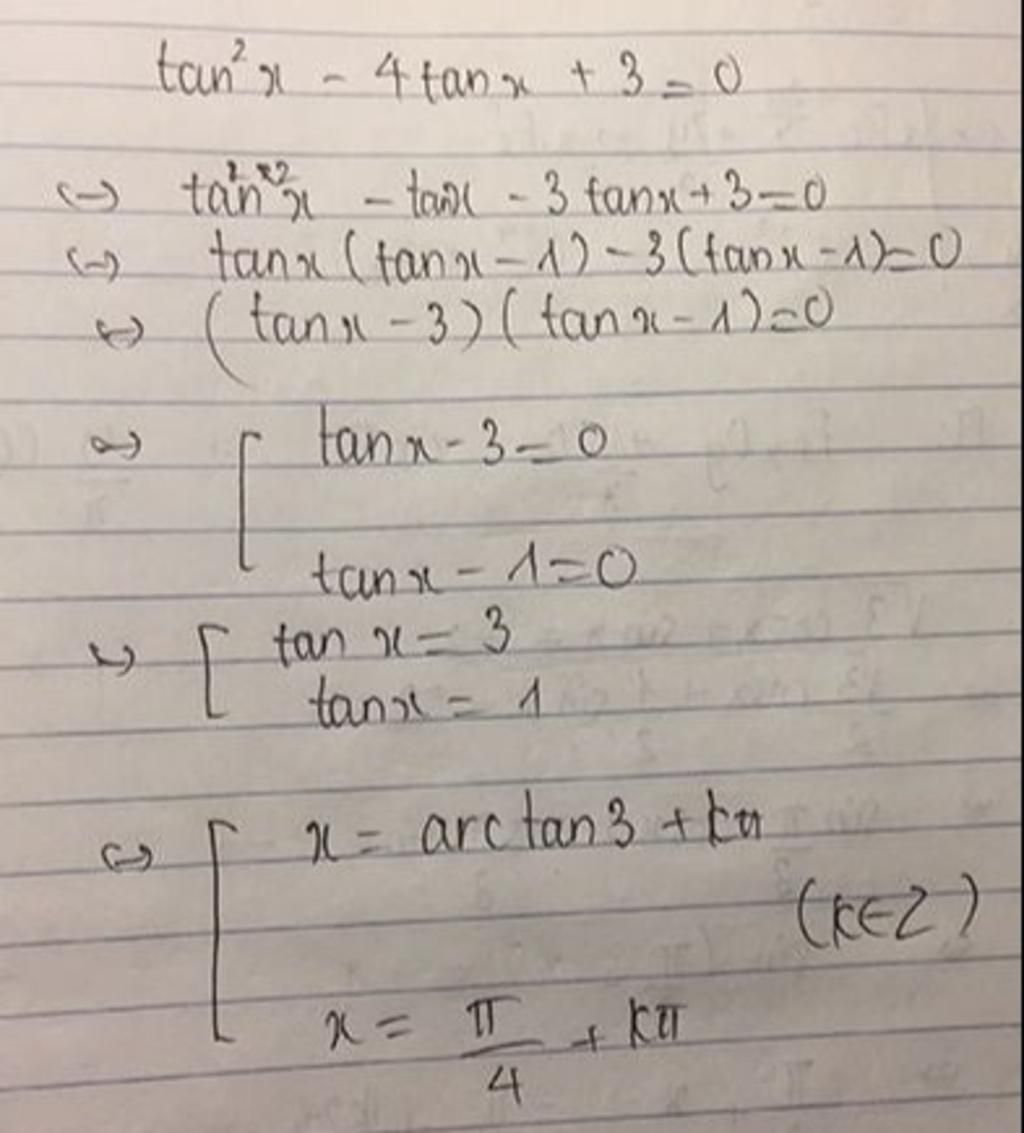 tan²x - 4tanx + 3 = 0
↔ tan²x - tanx - 3 tanx + 3 = 0
↔ tanx (tanx - 1) - 3(tanx - 1) = 0
↔ (tanx - 3)(tanx - 1) = 0
↔ [ tanx - 3 = 0
tanx - 1 = 0
↔ [ tan x = 3
tanx = 1
↔ [ x = arctan3 + kπ
(k∈Z)
x = π/4 + kπ